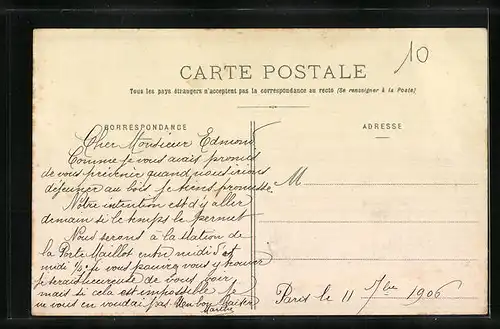 10
CARTE POSTALE
Tous les pays étrangers n'acceptent pas la correspondance au recto (Se renseigner à la Poste)
CORRESPONDANCE
ADRESSE
Cher Monsieur Edmond
Comme je vous avais promis
de vous prévenir quand nous irions
déjeuner au bois je tiens promesse
Notre intention est d'y aller
demain si le temps le permet
Nous serons à la station de
la Porte Maillot entre midi et
midi ½ si vous pouvez vous y trouver
je serais heureuse de vous voir,
mais si cela est impossible je
ne vous en voudai pas Un bon Baiser
M
Paris le 11 7bre 1906